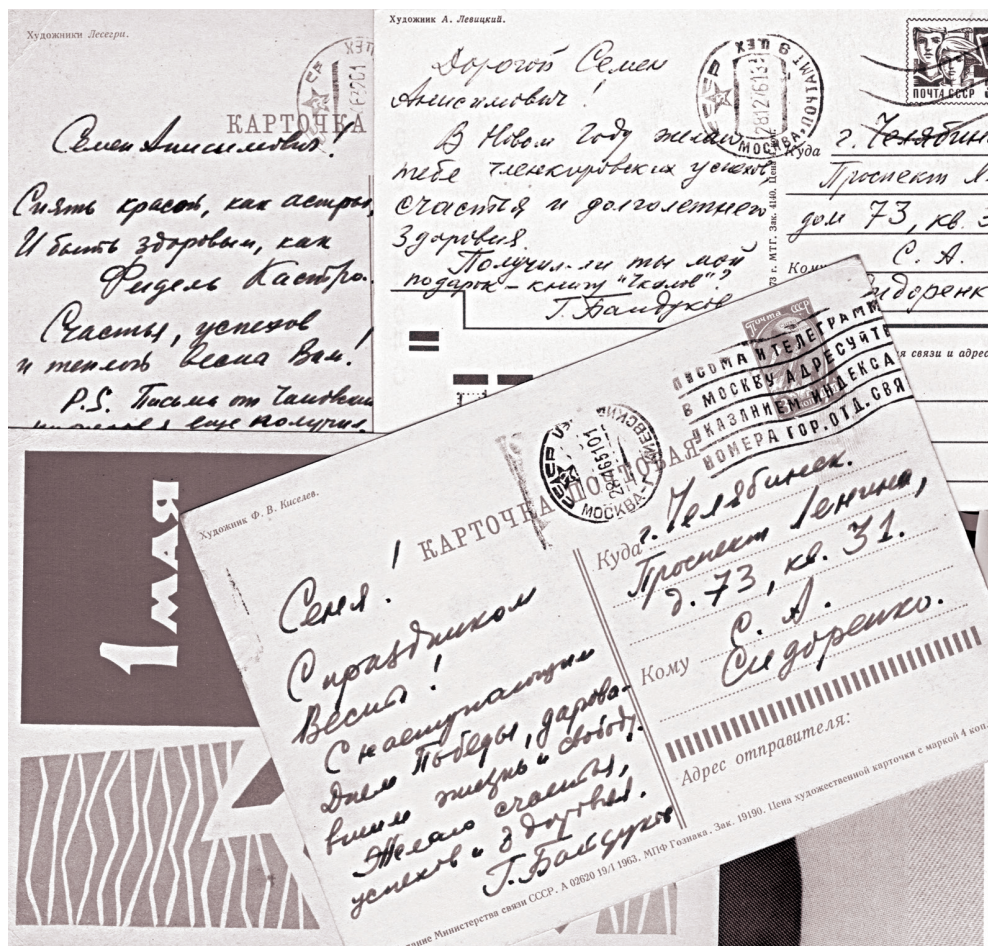 Художники Лесегри.
КАРТОЧКА
Семен Анисимович!
Сиять красой, как астры,
И быть здоровым, как
Фидель Кастро.
Счастья, успехов
и теплоты весна Вам!
P.S. Письма от
еще получил
Художник А. Левицкий.
Дорогой Семен
Анисимович!
В Новом году желаю
тебе членкировских успехов,
счастья и долголетнего
здоровия.
Получил-ли ты мой
подарок – книгу "Чкалов"?
Г. Байдуков
СССР
28126913
МОСКВА, ПОЧТАМТ 9 ЦЕХ
ПОЧТА СССР
Куда
г. Челябинс
Проспект Л
дом 73, кв. 3
Кому
С. А.
Сидоренк
73 г. МТГ. Зак. 4140. Цена
связи и адрес
1 МАЯ
Художник Ф. В. Киселев.
КАРТОЧКА ПОЧТОВАЯ
СССР
МОСКВА
28446510
Почта СССР
ПИСЬМА И ТЕЛЕГРАММ
В МОСКВУ АДРЕСУЙТЕ
УКАЗАНИЕМ ИНДЕКСА
НОМЕРА ГОР. ОТД. СВЯ
Сеня!
С праздником
Весны!
С наступающим
Днем Победы, даровав-
шим жизнь и свободу.
Желаю счастья,
успехов и здоровья.
Г. Байдуков
Куда
г. Челябинск.
Проспект Ленина,
д. 73, кв. 31.
Кому
С. А.
Сидоренко.
Адрес отправителя:
дание Министерства связи СССР. А 02620 19/I 1963. МПФ Гознака. Зак. 19190. Цена художественной карточки с маркой 4 коп.